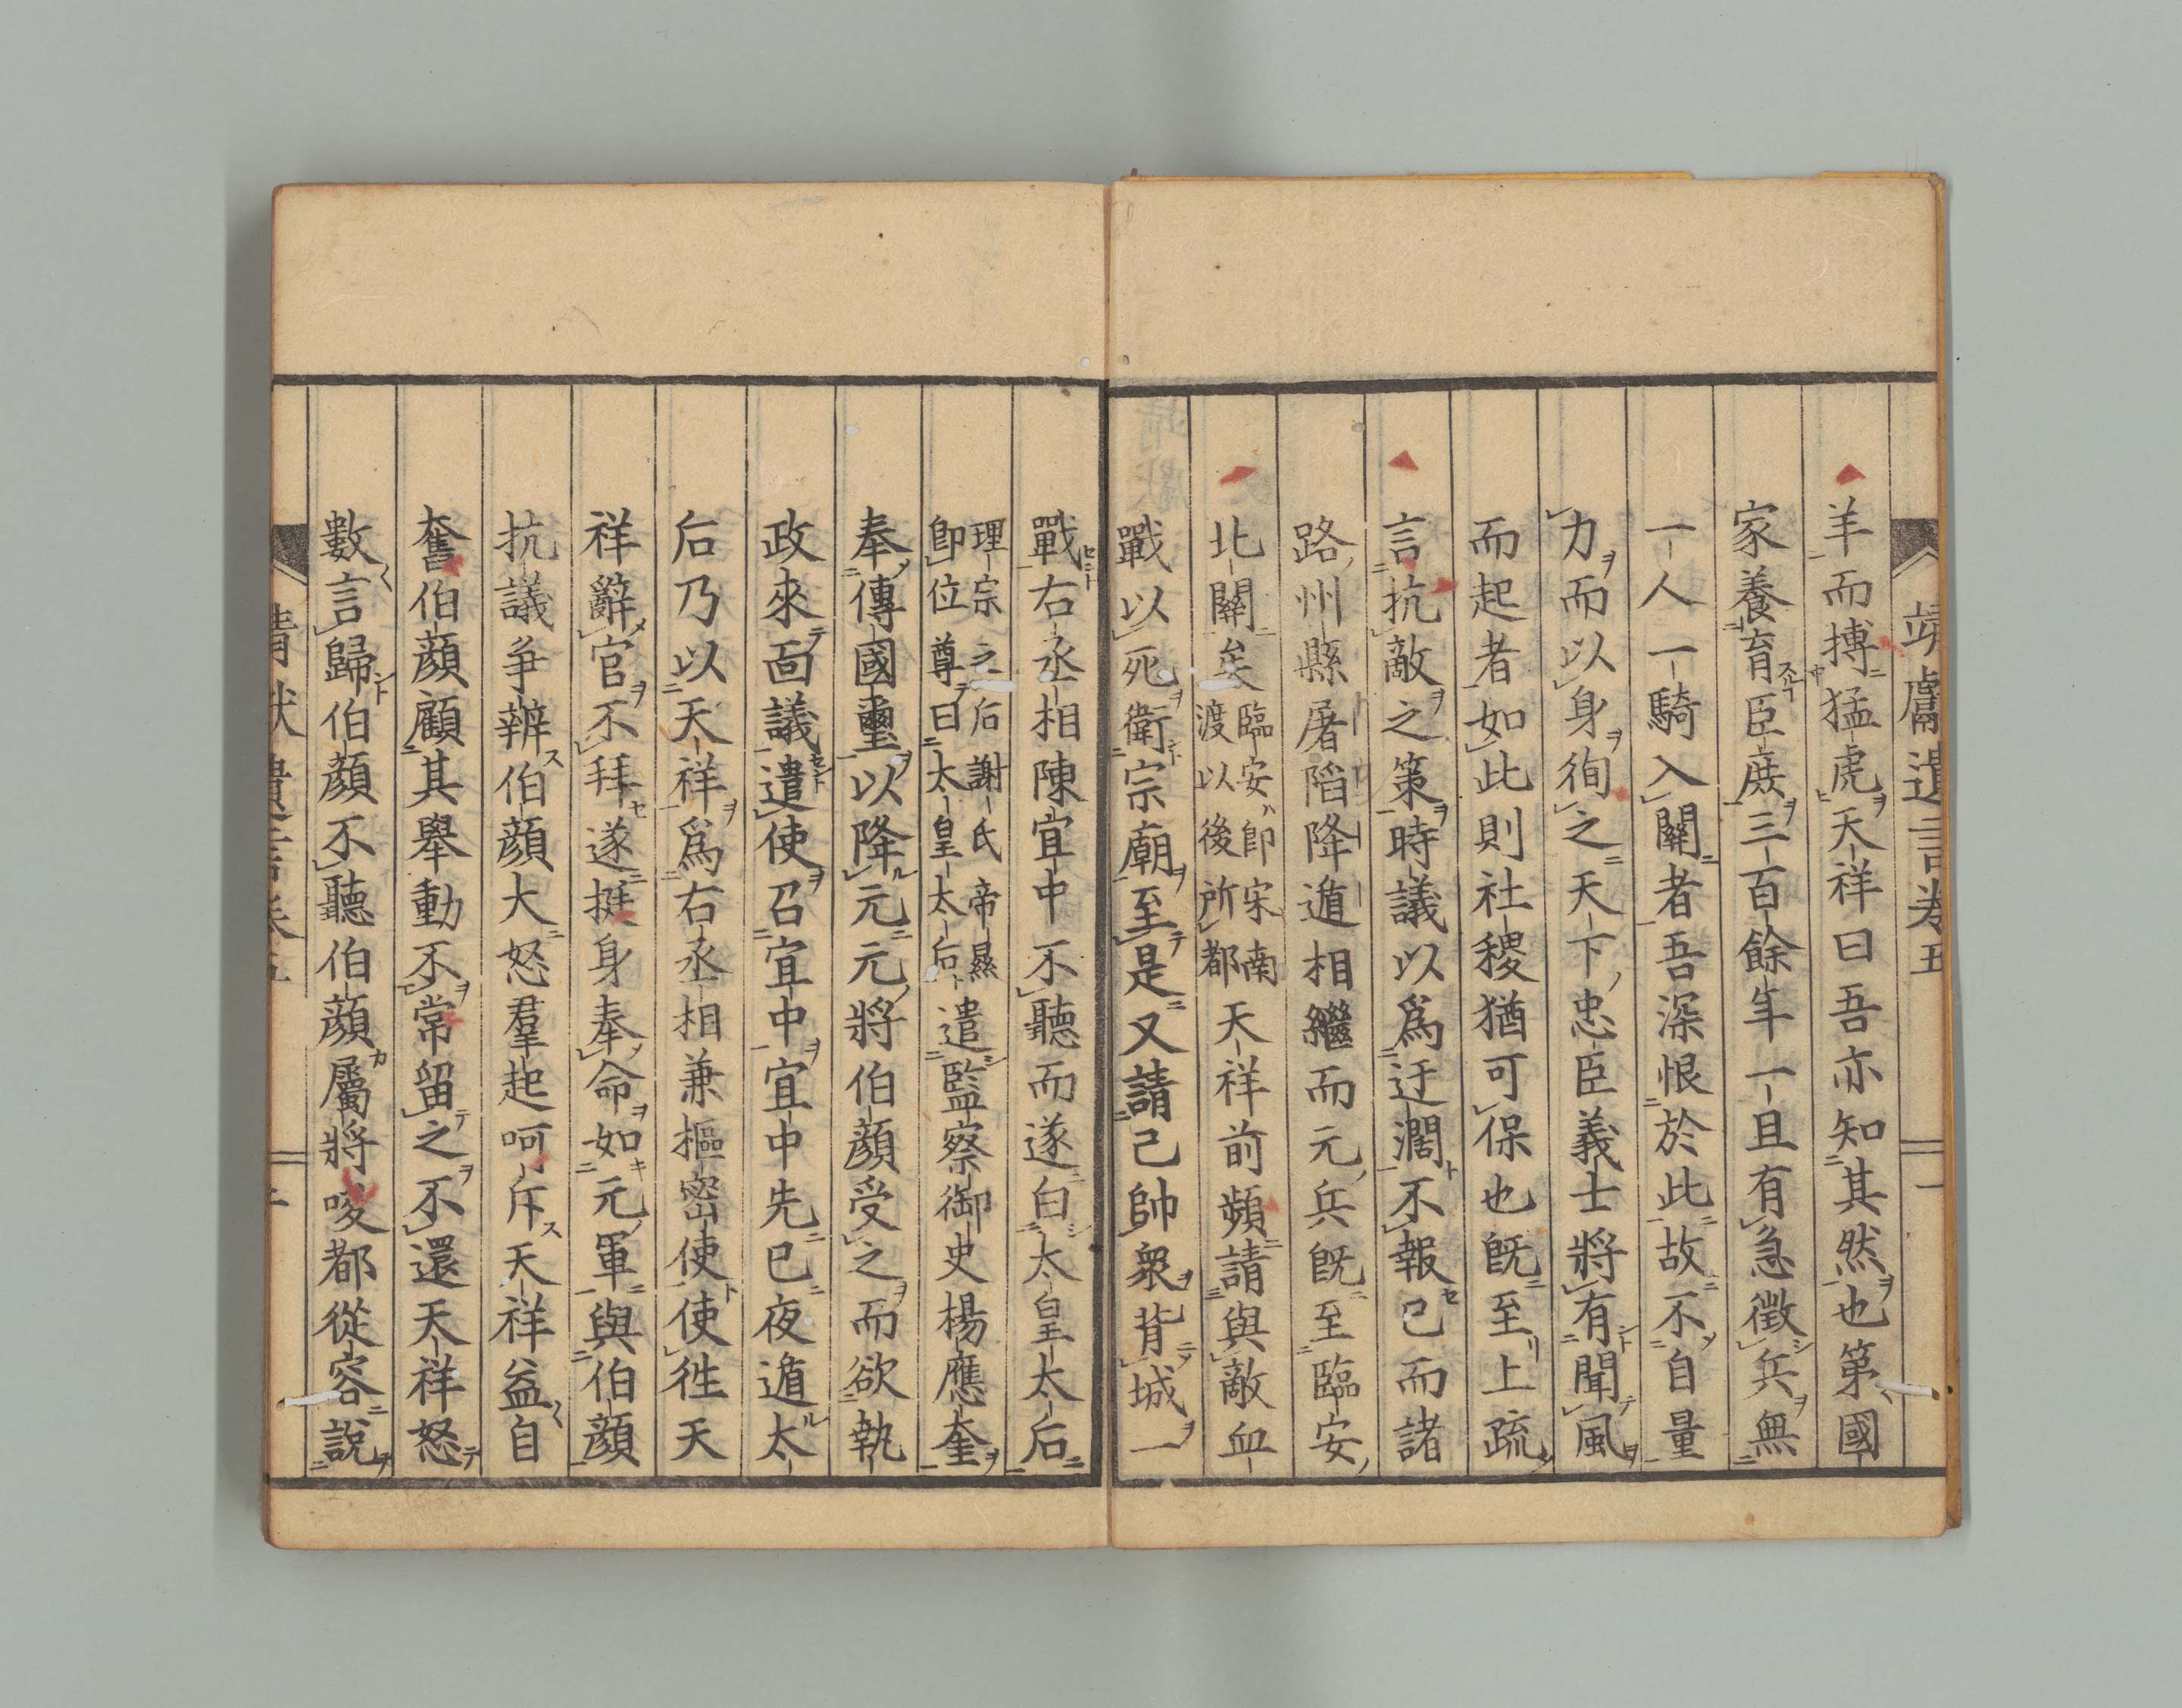 靖獻遺言卷五
一
羊而搏猛虎天祥曰吾亦知其然也第國
家養育臣庶三百餘年一旦有急徴兵無
一人一騎入關者吾深恨於此故不自量
力而以身徇之天下忠臣義士將有聞風
而起者如此則社稷猶可保也既至上疏
言抗敵之策時議以爲迂濶不報已而諸
路州縣屠陷降遁相繼而元兵既至臨安
北關矣臨安即宋南渡以後所都天祥前頻請與敵血
戰以死衛宗廟至是又請己帥衆背城一
戰右丞相陳宜中不聽而遂白太皇太后
理宗之后謝氏帝㬎即位尊曰太皇太后遣監察御史楊應奎
奉傳國璽以降元元將伯顔受之而欲執
政來面議遣使召宜中宜中先已夜遁太
后乃以天祥爲右丞相兼樞密使使徃天
祥辭官不拜遂挺身奉命如元軍與伯顔
抗議爭辨伯顔大怒羣起呵斥天祥益自
奮伯顔顧其舉動不常留之不還天祥怒
數言歸伯顔不聽伯顔屬將唆都從容說